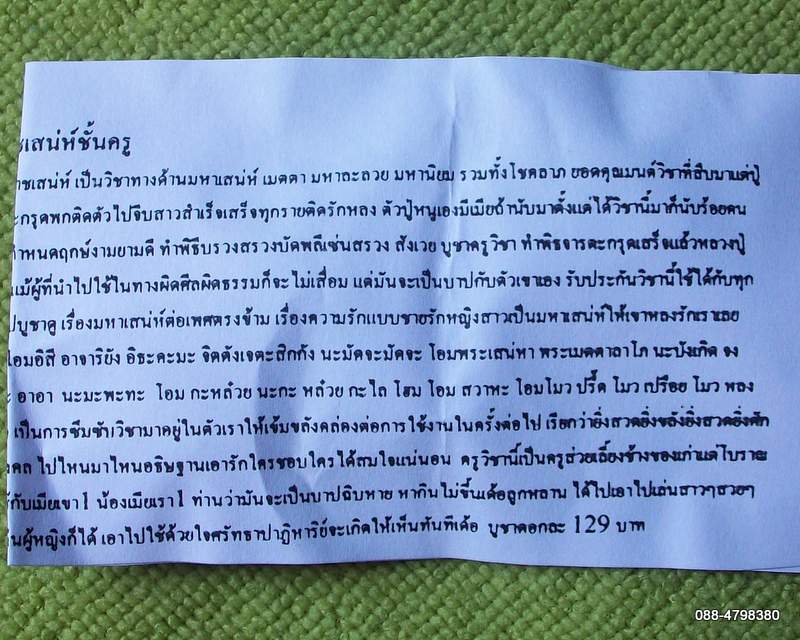 เสน่ห์ชั้นครู
าชเสน่ห์ เป็นวิชาทางด้านมหาเสน่ห์ เมตตา มหาละลวย มหานิยม รวมทั้งโชคลาภ ยอดคุณมนต์วิชาที่สืบมาแต่ปู่
ะกรุดพกติดตัวไปจีบสาวสำเร็จเสร็จทุกรายติดรักหลง ตัวปู่หนูเองมีเมียถ้านับมาตั้งแต่ได้วิชานี้มาก็นับร้อยคน
กำหนดฤกษ์งามยามดี ทำพิธีบรวงสรวงบัดพลีเซ่นสรวง สังเวย บูชาครูวิชา ทำพิธจารตะกรุดเสร็จแล้วหลวงปู่
แม้ผู้ที่นำไปใช้ในทางผิดศีลผิดธรรมก็จะไม่เสื่อม แต่มันจะเป็นบาปกับตัวเขาเอง รับประกันวิชานี้ใช้ได้กับทุก
บูชาดู เรื่องมหาเสน่ห์ต่อเพศตรงข้าม เรื่องความรักแบบชายรักหญิงสาวเป็นมหาเสน่ห์ให้เขาหลงรักเราเลย
โอมอิสี อาจาริยัง อิธะคะมะ จิตตังเจตะสิกกัง นะมัดจะมัดจะ โอมพระเสน่หา พระเมตตาลาโภ นะบังเกิด จง
อาอา นะมะพะทะ โอม กะหล๋วย นะกะ หล๋วย กะไล โฮม โอม สวาหะ โอมโมว ปรี๊ด โมว เปรือย โมว หลง
เป็นการซึมซับวิชามาอยู่ในตัวเราให้เข้มขลังคล่องต่อการใช้งานในครั้งต่อไป เรียกว่ายิ่งสวดยิ่งขลังยิ่งสวดยิ่งศัก
คล ไปไหนมาไหนอธิษฐานเอารักใครชอบใครได้สมใจแน่นอน ครูวิชานี้เป็นครูส่วยเลี้ยงช้างของเก่าแต่โบราณ
กับเมียเขา1 น้องเมียเรา1 ท่านว่ามันจะเป็นบาปฉิบหาย หากินไม่ขึ้นเด้อลูกหลาน ได้ไปเอาไปเล่นสาวๆสวยๆ
นผู้หญิงก็ได้ เอาไปใช้ด้วยใจศรัทธาปาฏิหาริย์จะเกิดให้เห็นทันทีเด้อ บูชาดอกละ 129 บาท
088-4798380